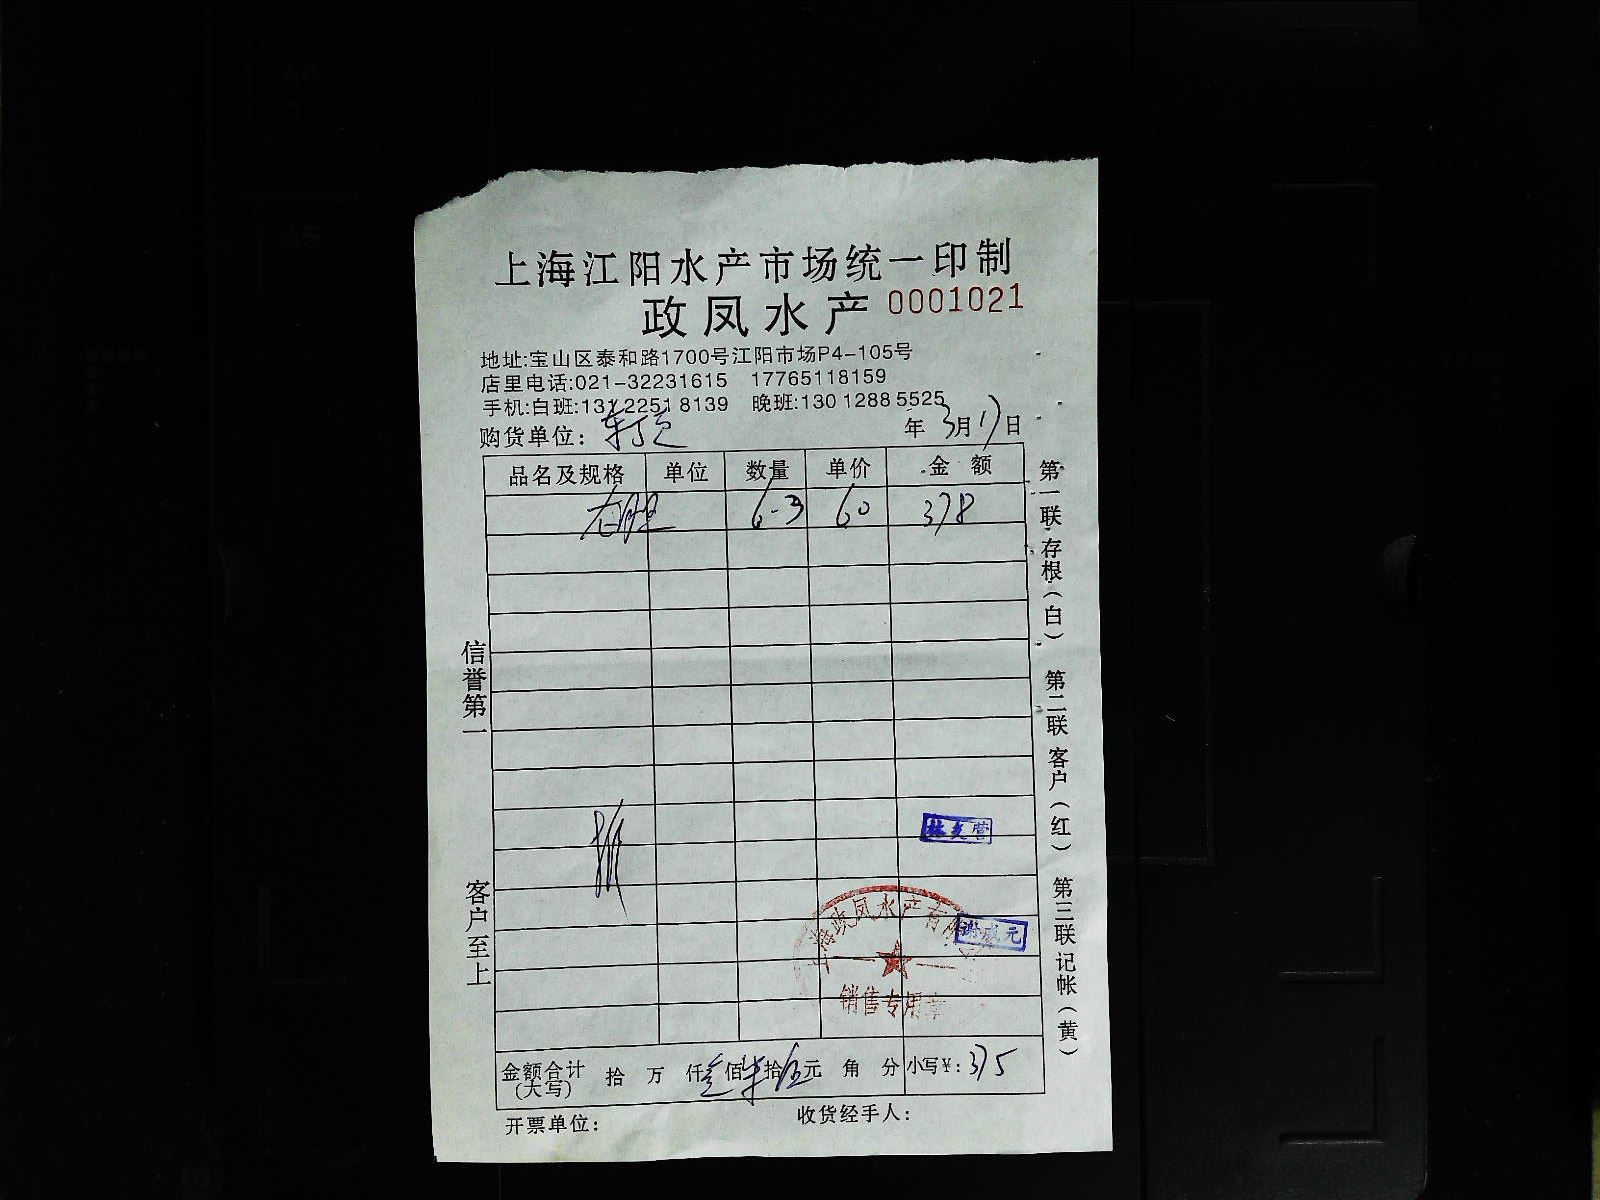 上海江阳水产市场统一印制
政凤水产 0001021
地址:宝山区泰和路1700号江阳市场P4-105号
店里电话:021-32231615 17765118159
手机:白班:131 2251 8139 晚班:130 1288 5525
购货单位: 年 3月17日
品名及规格 单位 数量 单价 金额
6-3 60 378
信誉第一
客户至上
第一联 存根(白)
第二联 客户(红)
第三联 记帐(黄)
政凤水产有
销售专用章
金额合计(大写) 拾 万 仟 叁佰 柒拾 伍元 角 分 小写¥: 375
开票单位: 收货经手人: